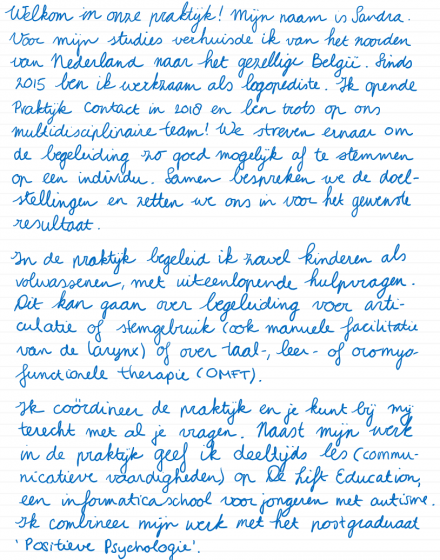 Welkom in onze praktijk! Mijn naam is Sandra.
Voor mijn studies verhuisde ik van het noorden
van Nederland naar het gezellige België. Sinds
2015 ben ik werkzaam als logopediste. Ik opende
Praktijk Contact in 2018 en ben trots op ons
multidisciplinaire team! We streven ernaar om
de begeleiding zo goed mogelijk af te stemmen
op een individu. Samen bespreken we de doel-
stellingen en zetten we ons in voor het gewenste
resultaat.
In de praktijk begeleid ik zowel kinderen als
volwassenen, met uiteenlopende hulpvragen.
Dit kan gaan over begeleiding voor arti-
culatie of stemgebruik (ook manuele facilitatie
van de larynx) of over taal-, leer- of oromyo-
functionele therapie (OMFT).
Ik coördineer de praktijk en je kunt bij mij
terecht met al je vragen. Naast mijn werk
in de praktijk geef ik deeltijds les (commu-
nicatieve vaardigheden) op De Lift Education,
een informaticaschool voor jongeren met autisme.
Ik combineer mijn werk met het postgraduaat
'Positieve Psychologie'.